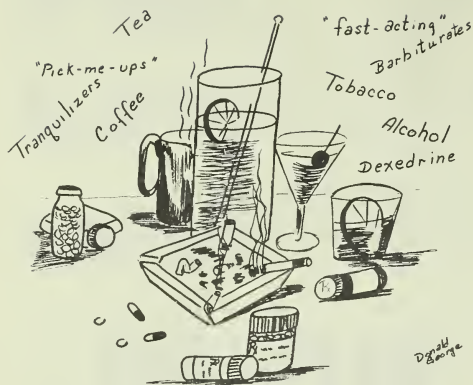 Tea
"Pick-me-ups"
Tranquilizers
Coffee
"fast-acting"
Barbiturates
Tobacco
Alcohol
Dexedrine
Rx
Donald
George